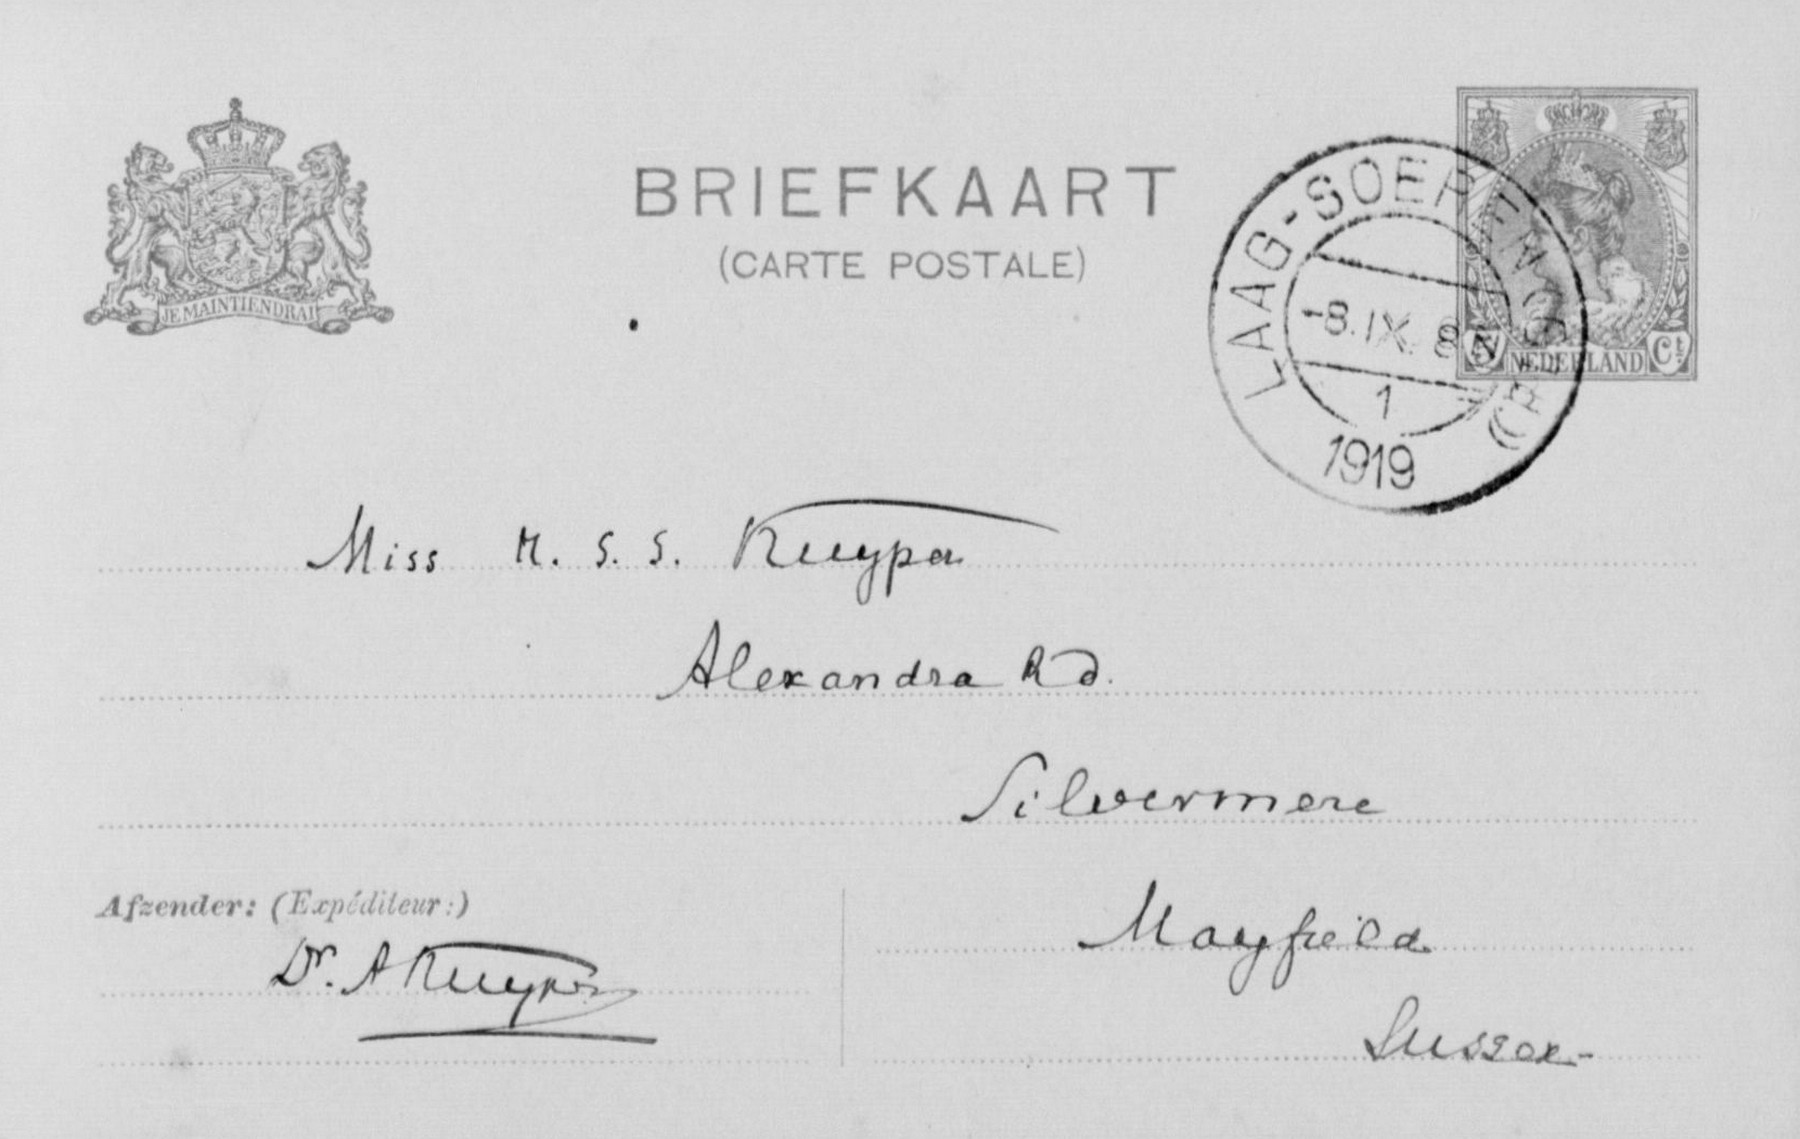 BRIEFKAART
(CARTE POSTALE)
JE MAINTIENDRAI
LAAG-SOEREN
-8.IX. 8
1
1919
NEDERLAND
Ct
Miss M. S. S. Kuyper
Alexandra Rd.
Silvermere
Mayfield
Sussex-
Afzender: (Expéditeur:)
Dr. A Kuyper